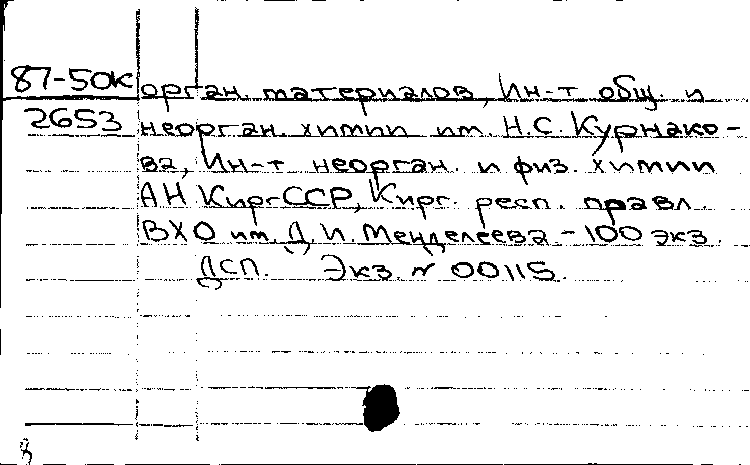 87-50к орган. материалов, Ин-т общ. и
2653 неорган. химии им. Н.С. Курнако-
ва, Ин-т неорган. и физ. химии
АН КиргССР, Кирг. респ. правл.
ВХО им. Д.И. Менделеева. - 100 экз.
ДСП. Экз. № 00115.